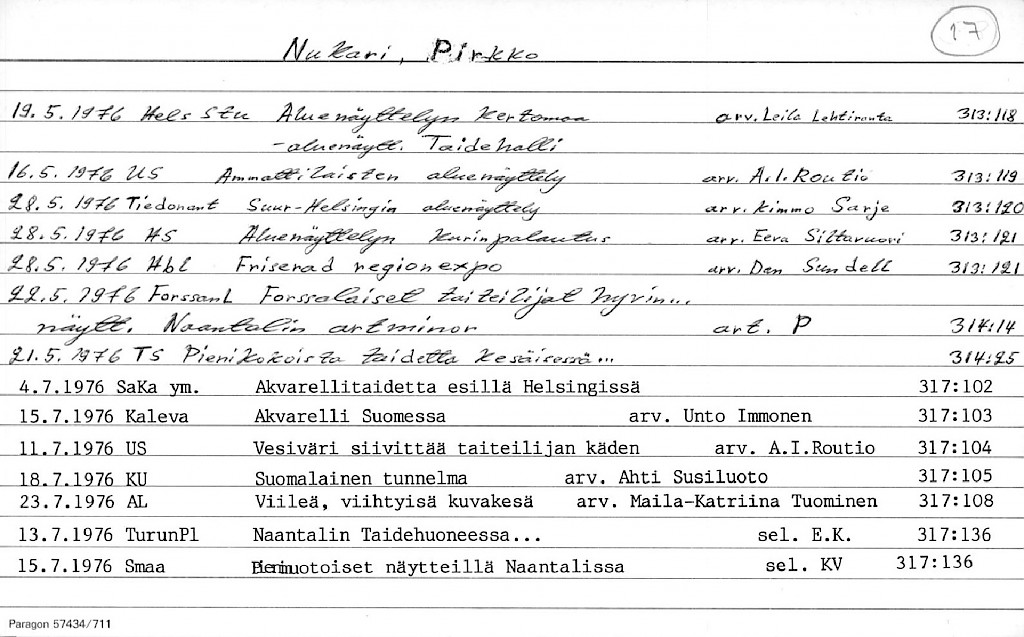 17
Nukari, Pirkko
19.5.1976 Hels Stu Aluenäyttelyn kertomaa arv. Leila Lehtiranta 313:118
-aluenäytt. Taidehalli
16.5.1976 US Ammattilaisten aluenäyttely arv. A.I.Routio 313:119
28.5.1976 Tiedonant Suur-Helsingin aluenäyttely arv. Kimmo Sarje 313:120
28.5.1976 HS Aluenäyttelyn kurinpalautus arv. Eeva Siltavuori 313:121
28.5.1976 Hbl Friserad regionexpo arv. Dan Sundell 313:121
22.5.1976 ForssanL Forssalaiset taiteilijat hyvin...
näytt. Naantalin artminor art. P 314:14
21.5.1976 TS Pienikokoista taidetta kesäisessä... 314:25
4.7.1976 SaKa ym. Akvarellitaidetta esillä Helsingissä 317:102
15.7.1976 Kaleva Akvarelli Suomessa arv. Unto Immonen 317:103
11.7.1976 US Vesiväri siivittää taiteilijan käden arv. A.I.Routio 317:104
18.7.1976 KU Suomalainen tunnelma arv. Ahti Susiluoto 317:105
23.7.1976 AL Viileä, viihtyisä kuvakesä arv. Maila-Katriina Tuominen 317:108
13.7.1976 TurunPl Naantalin Taidehuoneessa... sel. E.K. 317:136
15.7.1976 Smaa Pienimuotoiset näytteillä Naantalissa sel. KV 317:136
Paragon 57434/711